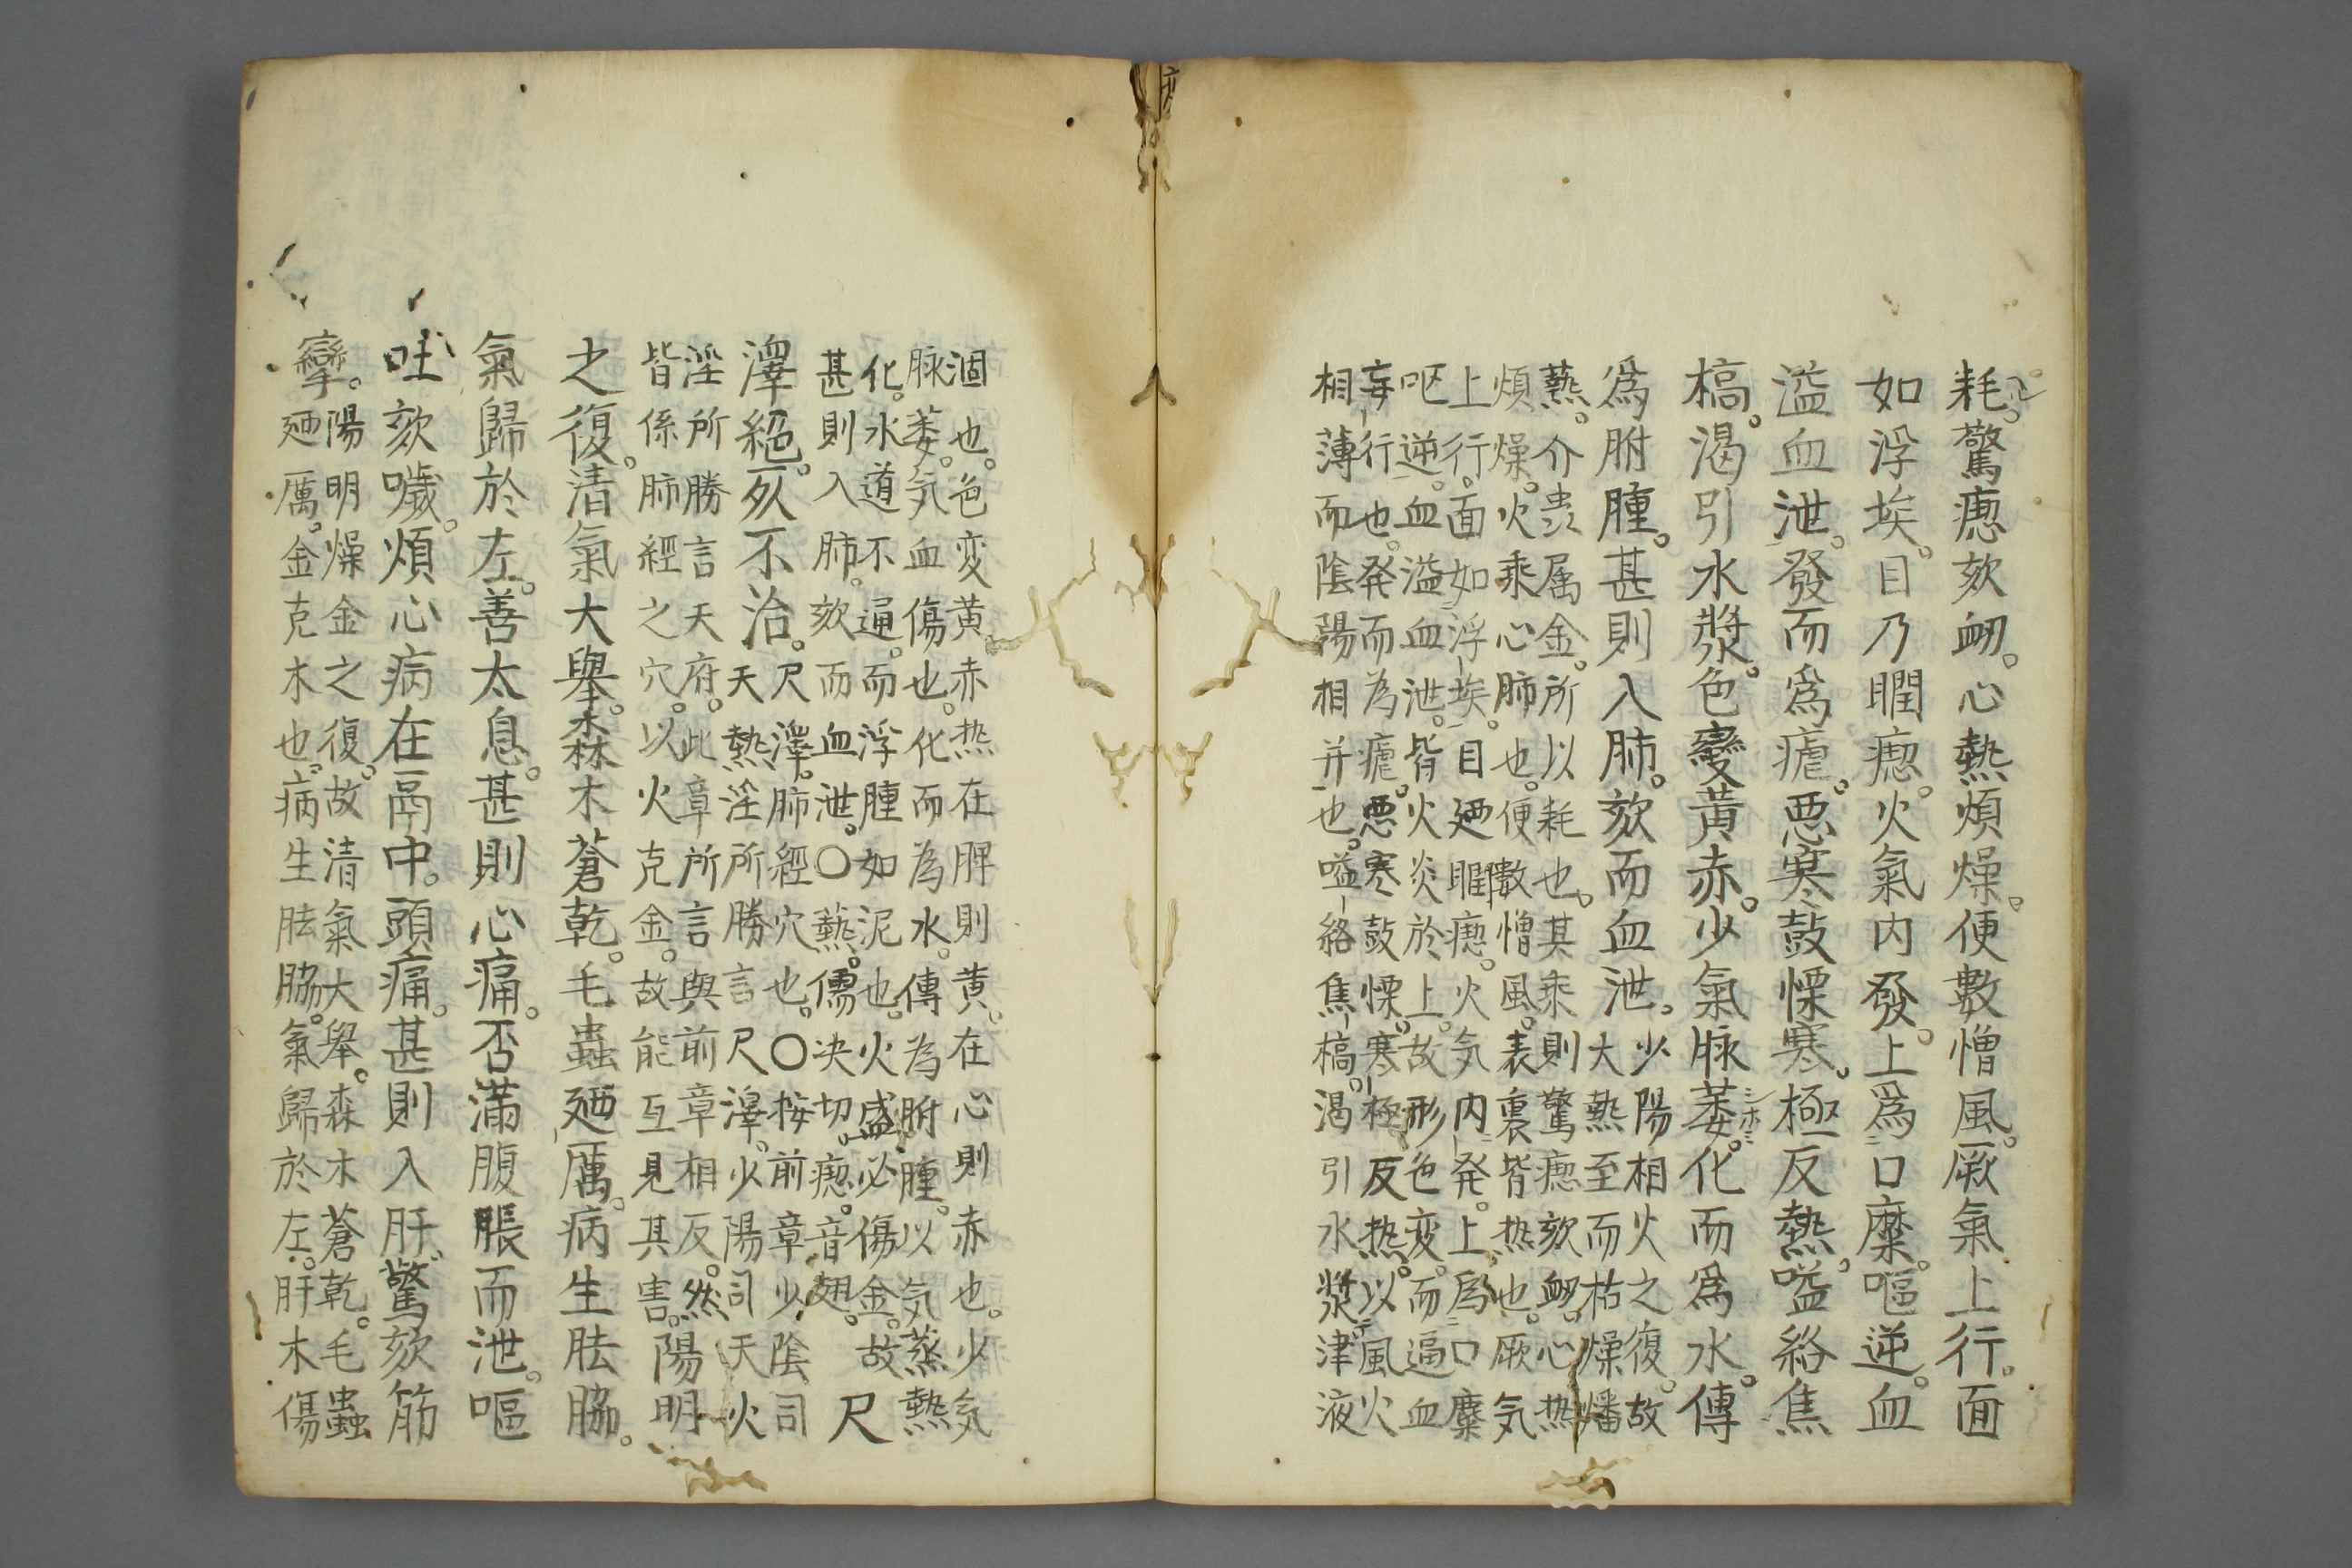 耗。驚瘛欬衄。心熱煩燥。便數憎風。厥氣上行。面
如浮埃。目乃瞤瘛。火氣内發。上爲口糜。嘔逆。血
溢血泄。發而爲瘧。悪寒鼓慄寒。極反熱。嗌絡焦
槁。渇引水漿。色變黃赤。少氣脉萎。化而爲水。傳
爲胕腫。甚則入肺。欬而血泄。少陽相火之復。故
大熱至而枯燥燔
爇。介䖝属金。所以耗也。其乘則驚瘛欬衄。心热
煩燥。火乘心肺也。便數憎風。表裏皆热也。厥気
上行。面如浮埃。目廼瞤瘛。火気内発。上爲口糜
呕逆。血溢血泄。皆火炎於上。故形色変。而逼血
妄行也。発而為瘧。悪寒鼓慄。寒極反热。以風火
相薄而陰陽相并也。嗌絡焦槁。渇引水漿津液
涸也。色変黄赤热在脾則黄。在心則赤也。少気
脉萎。気血傷也。化而為水。傳為胕腫。以気蒸熱
化。水道不通。而浮腫如泥也。火盛必傷金。故
甚則入肺。欬而血泄。○爇。儒决切。瘛。音翅。尺
澤絕。死不治。尺澤。肺經穴也。○按前章少陰司
天熱淫所勝言尺澤。少陽司天火
淫所勝言天府。此章所言與前章相反。然
皆係肺經之穴。以火克金。故能互見其害。陽明
之復。清氣大舉。森木蒼乾。毛蟲廼厲。病生胠脇。
氣歸於左。善太息。甚則心痛。否滿腹脹而泄。嘔
吐欬噦。煩心病在鬲中。頭痛。甚則入肝。驚欬筋
攣。陽明燥金之復。故清氣大舉。森木蒼乾。毛蟲
廼厲。金克木也。病生胠脇。氣歸於左。肝木傷